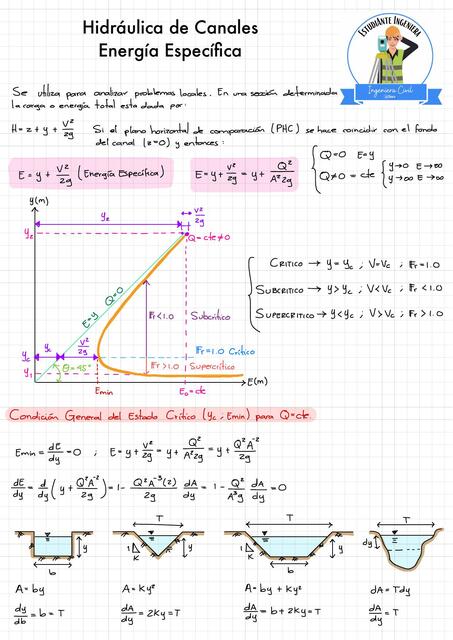 Hidráulica de Canales
Energía Específica
EstudiAnte IngenierA
Ingeniería Civil
Se utiliza para analizar problemas locales. En una sección determinada
la carga o energía total esta dada por:
H = z + y + V²/2g Si el plano horizontal de comparación (PHC) se hace coincidir con el fondo
del canal (z=0) y entonces:
E = y + V²/2g (Energía Específica)
E = y + V²/2g = y + Q²/A²2g
Q=0 E=y
Q≠0 = cte { y→0 E→∞
y→∞ E→∞
y(m)
y₂
V²/2g
y₂
Q=cte≠0
Q=0
E=y
Fr<1.0 Subcrítico
yc
V²/2g
yc
Fr=1.0 Crítico
θ=45°
Fr>1.0 Supercrítico
y₁
E(m)
Emin
E₀=cte
Crítico → y=yc ; V=Vc ; Fr=1.0
Subcrítico → y>yc ; V<Vc ; Fr<1.0
Supercrítico → y<yc ; V>Vc ; Fr>1.0
Condición General del Estado Crítico (yc ; Emin) para Q=cte.
Emin = dE/dy = 0 ; E = y + V²/2g = y + Q²/A²2g = y + Q²A⁻²/2g
dE/dy = d/dy (y + Q²A⁻²/2g) = 1 - Q²A⁻³(2)/2g dA/dy = 1 - Q²/A³g dA/dy = 0
T T T
y 1 K y 1 K y dy
b b
A=by A=Ky² A=by+Ky² dA=Tdy
dy/db = b = T dA/dy = 2Ky = T dA/dy = b+2Ky = T dA/dy = T